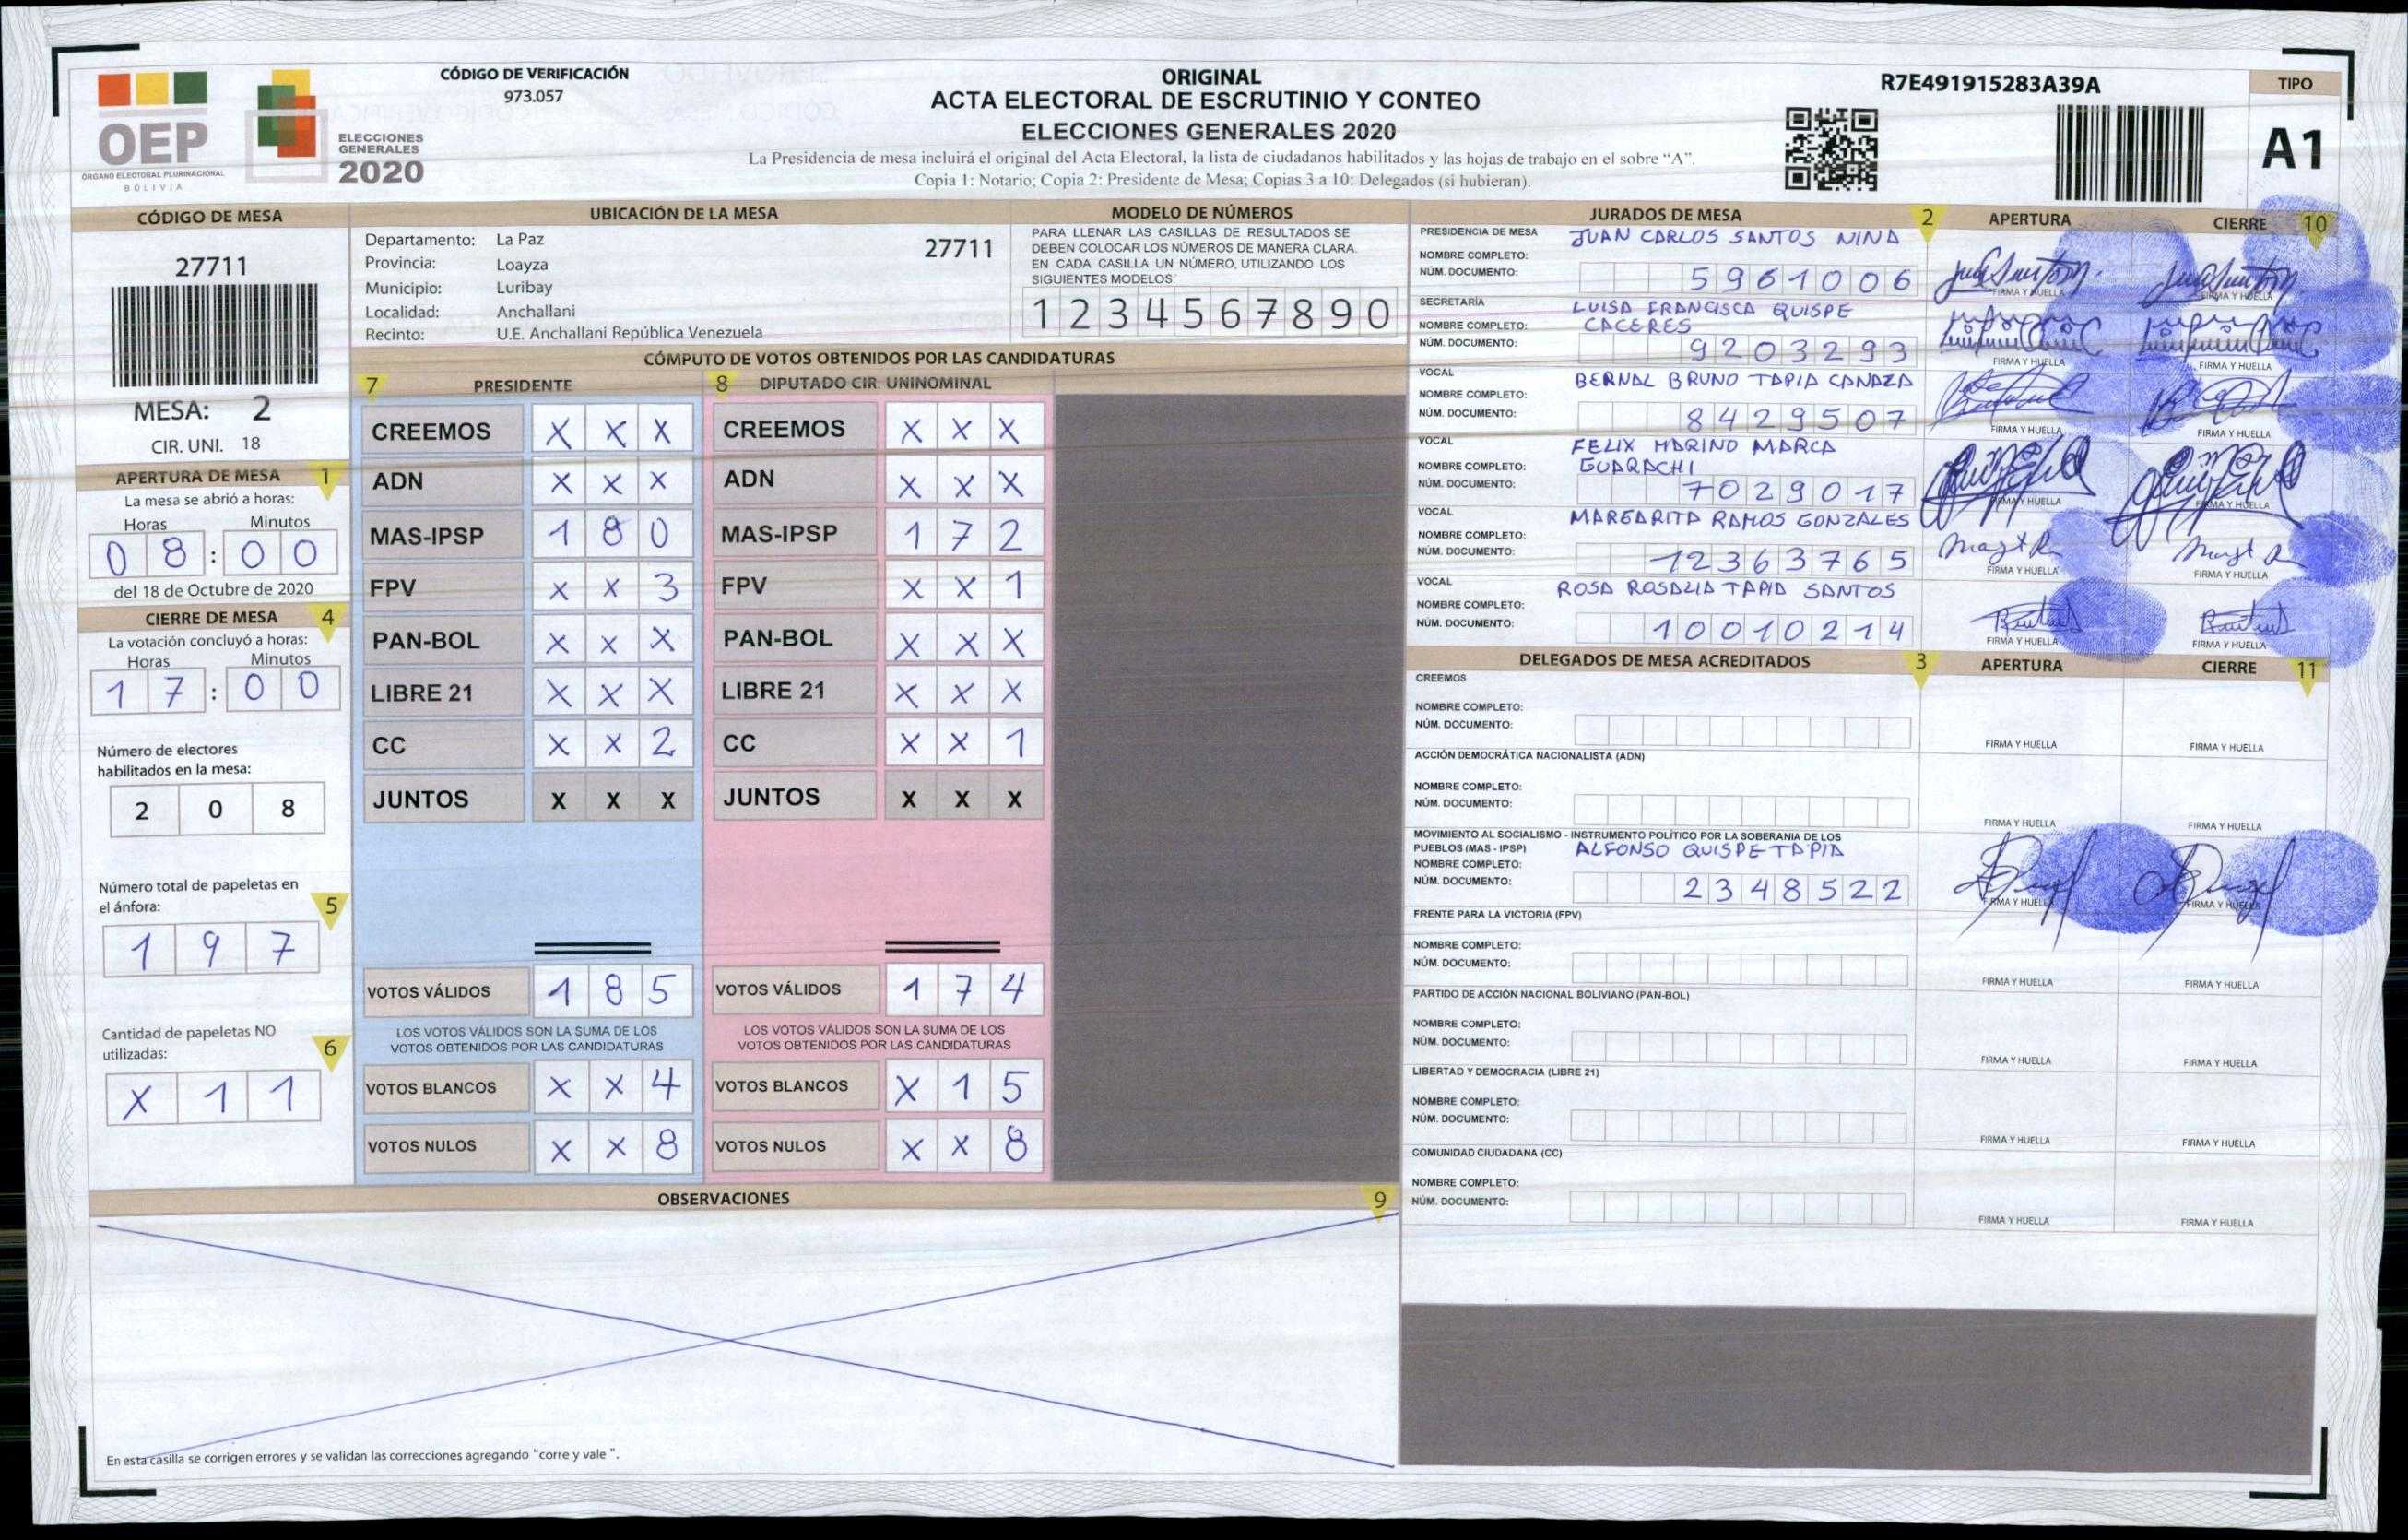 OEP
ÓRGANO ELECTORAL PLURINACIONAL
BOLIVIA
ELECCIONES
GENERALES
2020
CÓDIGO DE VERIFICACIÓN
973.057
ORIGINAL
ACTA ELECTORAL DE ESCRUTINIO Y CONTEO
ELECCIONES GENERALES 2020
La Presidencia de mesa incluirá el original del Acta Electoral, la lista de ciudadanos habilitados y las hojas de trabajo en el sobre “A”.
Copia 1: Notario; Copia 2: Presidente de Mesa; Copias 3 a 10: Delegados (si hubieran).
R7E491915283A39A
TIPO
A1
CÓDIGO DE MESA
27711
MESA: 2
CIR. UNI. 18
APERTURA DE MESA 1
La mesa se abrió a horas:
Horas Minutos
08:00
del 18 de Octubre de 2020
CIERRE DE MESA 4
La votación concluyó a horas:
Horas Minutos
17:00
Número de electores
habilitados en la mesa:
2 0 8
Número total de papeletas en
el ánfora: 5
1 9 7
Cantidad de papeletas NO
utilizadas: 6
X 1 1
UBICACIÓN DE LA MESA
Departamento: La Paz 27711
Provincia: Loayza
Municipio: Luribay
Localidad: Anchallani
Recinto: U.E. Anchallani República Venezuela
MODELO DE NÚMEROS
PARA LLENAR LAS CASILLAS DE RESULTADOS SE
DEBEN COLOCAR LOS NÚMEROS DE MANERA CLARA.
EN CADA CASILLA UN NÚMERO, UTILIZANDO LOS
SIGUIENTES MODELOS:
1 2 3 4 5 6 7 8 9 0
CÓMPUTO DE VOTOS OBTENIDOS POR LAS CANDIDATURAS
7 PRESIDENTE 8 DIPUTADO CIR. UNINOMINAL
CREEMOS X X X CREEMOS X X X
ADN X X X ADN X X X
MAS-IPSP 1 8 0 MAS-IPSP 1 7 2
FPV X X 3 FPV X X 1
PAN-BOL X X X PAN-BOL X X X
LIBRE 21 X X X LIBRE 21 X X X
CC X X 2 CC X X 1
JUNTOS X X X JUNTOS X X X
VOTOS VÁLIDOS 1 8 5 VOTOS VÁLIDOS 1 7 4
LOS VOTOS VÁLIDOS SON LA SUMA DE LOS LOS VOTOS VÁLIDOS SON LA SUMA DE LOS
VOTOS OBTENIDOS POR LAS CANDIDATURAS VOTOS OBTENIDOS POR LAS CANDIDATURAS
VOTOS BLANCOS X X 4 VOTOS BLANCOS X 1 5
VOTOS NULOS X X 8 VOTOS NULOS X X 8
OBSERVACIONES 9
En esta casilla se corrigen errores y se validan las correcciones agregando "corre y vale ".
JURADOS DE MESA 2 APERTURA CIERRE 10
PRESIDENCIA DE MESA JUAN CARLOS SANTOS NINA
NOMBRE COMPLETO:
NÚM. DOCUMENTO: 5961006
FIRMA Y HUELLA FIRMA Y HUELLA
SECRETARÍA LUISA FRANCISCA QUISPE
NOMBRE COMPLETO: CACERES
NÚM. DOCUMENTO: 9203293
FIRMA Y HUELLA FIRMA Y HUELLA
VOCAL BERNAL BRUNO TAPIA CANAZA
NOMBRE COMPLETO:
NÚM. DOCUMENTO: 8429507
FIRMA Y HUELLA FIRMA Y HUELLA
VOCAL FELIX MARINO MARCA
NOMBRE COMPLETO: GUARACHI
NÚM. DOCUMENTO: 7029017
FIRMA Y HUELLA FIRMA Y HUELLA
VOCAL MARGARITA RAMOS GONZALES
NOMBRE COMPLETO:
NÚM. DOCUMENTO: 12363765
FIRMA Y HUELLA FIRMA Y HUELLA
VOCAL ROSA ROSALIA TAPIA SANTOS
NOMBRE COMPLETO:
NÚM. DOCUMENTO: 10010214
FIRMA Y HUELLA FIRMA Y HUELLA
DELEGADOS DE MESA ACREDITADOS 3 APERTURA CIERRE 11
CREEMOS
NOMBRE COMPLETO:
NÚM. DOCUMENTO:
FIRMA Y HUELLA FIRMA Y HUELLA
ACCIÓN DEMOCRÁTICA NACIONALISTA (ADN)
NOMBRE COMPLETO:
NÚM. DOCUMENTO:
FIRMA Y HUELLA FIRMA Y HUELLA
MOVIMIENTO AL SOCIALISMO - INSTRUMENTO POLÍTICO POR LA SOBERANIA DE LOS
PUEBLOS (MAS - IPSP) ALFONSO QUISPE TAPIA
NOMBRE COMPLETO:
NÚM. DOCUMENTO: 2348522
FIRMA Y HUELLA FIRMA Y HUELLA
FRENTE PARA LA VICTORIA (FPV)
NOMBRE COMPLETO:
NÚM. DOCUMENTO:
FIRMA Y HUELLA FIRMA Y HUELLA
PARTIDO DE ACCIÓN NACIONAL BOLIVIANO (PAN-BOL)
NOMBRE COMPLETO:
NÚM. DOCUMENTO:
FIRMA Y HUELLA FIRMA Y HUELLA
LIBERTAD Y DEMOCRACIA (LIBRE 21)
NOMBRE COMPLETO:
NÚM. DOCUMENTO:
FIRMA Y HUELLA FIRMA Y HUELLA
COMUNIDAD CIUDADANA (CC)
NOMBRE COMPLETO:
NÚM. DOCUMENTO:
FIRMA Y HUELLA FIRMA Y HUELLA